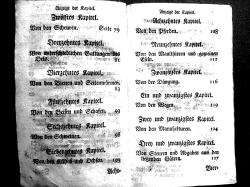 Anzeige der Kapitel.
Zwölftes Kapitel.
Von den Scheuren. Seite 79
Dreyzehntes Kapitel.
Von unterschiedlichen Gattungen des
Vierzehntes Kapitel.
Von den Bienen und
Fünfzehntes Kapitel.
Von den und Schafen.
Sechzehntes Kapitel.
Von den Schweinen.
Siebenzehntes Kapitel.
Von den Kühen und Ochsen.
Acht-
Anzeige der Kapitel.
Achzehntes Kapitel.
Von den Pferden. 108
Neunzehntes Kapitel.
Von den und gemeinen
Zwanzigstes Kapitel.
Von der Düngung.
Ein und zwanzigstes Kapitel.
Von den Wägen. 119
Zwey und zwanzigstes Kapitel.
Von der Manufakturen. 124
Drey und zwanzigstes Kapitel.
Von Steuren und Abgaben aus den
Gütern. 127
Vier-